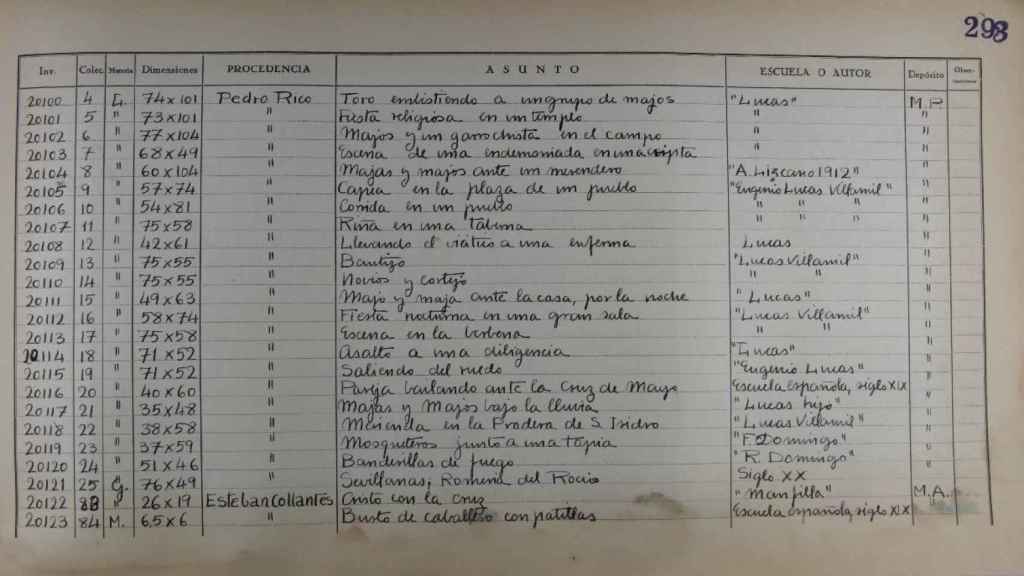 298
Inv. Colec. Materia Dimensiones PROCEDENCIA ASUNTO ESCUELA O AUTOR Depósito Obser-
20100 4 L. 74x101 Pedro Rico Toro embistiendo a un grupo de majos "Lucas" M.P.
20101 5 " 73x101 " Fiesta religiosa en un templo " "
20102 6 " 77x104 " Majos y un garrochista en el campo " "
20103 7 " 68x49 " Escena de una endemoniada en una cripta " "
20104 8 " 60x104 " Majas y majos ante un merendero "A. Lizcano 1912" "
20105 9 " 57x74 " Capea en la plaza de un pueblo "Eugenio Lucas Villamil" "
20106 10 " 54x81 " Corrida en un pueblo " " " "
20107 11 " 75x58 " Riña en una taberna " " " "
20108 12 " 42x61 " Llevando el viático a una enferma Lucas "
20109 13 " 75x55 " Bautizo "Lucas Villamil" "
20110 14 " 75x55 " Novios y cortejo " " "
20111 15 " 49x63 " Majo y maja ante la casa, por la noche "Lucas" "
20112 16 " 58x74 " Fiesta nocturna en una gran sala "Lucas Villamil" "
20113 17 " 75x58 " Escena en la verbena " " "
20114 18 " 71x52 " Asalto a una diligencia "Lucas" "
20115 19 " 71x52 " Saliendo del ruedo "Eugenio Lucas" "
20116 20 " 40x60 " Pareja bailando ante la Cruz de Mayo Escuela española, siglo XIX "
20117 21 " 35x48 " Majas y Majos bajo la lluvia "Lucas hijo" "
20118 22 " 38x58 " Merienda en la Pradera de S. Isidro "Lucas Villamil" "
20119 23 " 37x59 " Mosqueteros junto a una tapia "F. Domingo" "
20120 24 " 51x46 " Banderillas de fuego "R. Domingo" "
20121 25 76x49 " Sevillanas; Romería del Rocío Siglo XX "
20122 83 " 26x19 Esteban Collantes Cristo con la cruz "Mansilla" M.A.
20123 84 M. 6,5x6 " Busto de caballero con patillas Escuela española, siglo XIX "